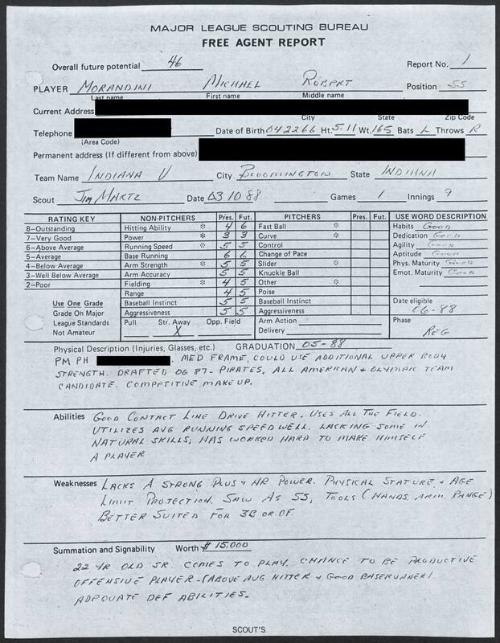 MAJOR LEAGUE SCOUTING BUREAU
FREE AGENT REPORT
Overall future potential 46 Report No. 1
PLAYER MORANDINI MICHAEL ROBERT Position SS
Last name First name Middle name
Current Address
City State Zip Code
Telephone Date of Birth 042266 Ht. 5-11 Wt. 165 Bats L Throws R
(Area Code)
Permanent address (If different from above)
Team Name INDIANA U City BLOOMINGTON State INDIANA
Scout JIM MARTZ Date 031088 Games 1 Innings 9
RATING KEY NON-PITCHERS Pres. Fut. PITCHERS Pres. Fut. USE WORD DESCRIPTION
8-Outstanding Hitting Ability * 4 6 Fast Ball * Habits Good
7-Very Good Power * 3 3 Curve * Dedication Good
6-Above Average Running Speed * 5 5 Control Agility Good
5-Average Base Running 6 6 Change of Pace Aptitude Good
4-Below Average Arm Strength * 5 5 Slider * Phys. Maturity Good
3-Well Below Average Arm Accuracy 5 5 Knuckle Ball Emot. Maturity Good
2-Poor Fielding * 4 5 Other *
Range 4 4 Poise Date eligible
Use One Grade Baseball Instinct 5 5 Baseball Instinct 06-88
Grade On Major Aggressiveness 5 5 Aggressiveness
League Standards Pull Str. Away Opp. Field Arm Action Phase
Not Amateur X Delivery REG
Physical Description (Injuries, Glasses, etc.) GRADUATION 05-88
PM PH MED FRAME, COULD USE ADDITIONAL UPPER BODY
STRENGTH. DRAFTED 06 87- PIRATES, ALL AMERICAN + OLYMPIC TEAM
CANDIDATE. COMPETITIVE MAKEUP.
Abilities GOOD CONTACT LINE DRIVE HITTER. USES ALL THE FIELD.
UTILIZES AVG RUNNING SPEED WELL. LACKING SOME IN
NATURAL SKILLS, HAS WORKED HARD TO MAKE HIMSELF
A PLAYER
Weaknesses LACKS A STRONG PLUS + HR POWER. PHYSICAL STATURE + AGE
LIMIT PROJECTION. SAW AS SS, TOOLS (HANDS, ARM, RANGE)
BETTER SUITED FOR 3B OR OF
Summation and Signability Worth $ 15,000
22 YR OLD SR. COMES TO PLAY. CHANCE TO BE PRODUCTIVE
OFFENSIVE PLAYER-(ABOVE AVG HITTER + GOOD BASERUNNER)
ADEQUATE DEF ABILITIES.
SCOUT'S